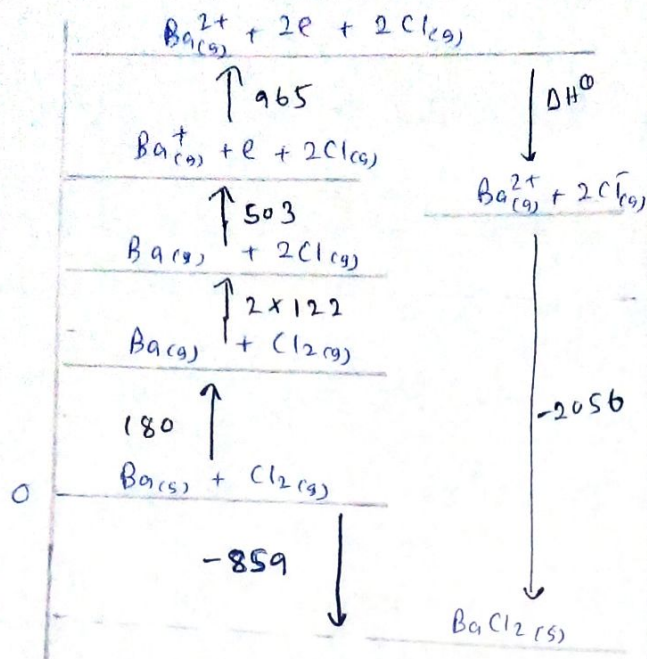 Ba²⁺(g) + 2e + 2Cl(g)
965
ΔH⦵
Ba⁺(g) + e + 2Cl(g)
Ba²⁺(g) + 2Cl⁻(g)
503
Ba(g) + 2Cl(g)
2×122
Ba(g) + Cl₂(g)
-2056
180
Ba(s) + Cl₂(g)
0
-859
BaCl₂(s)